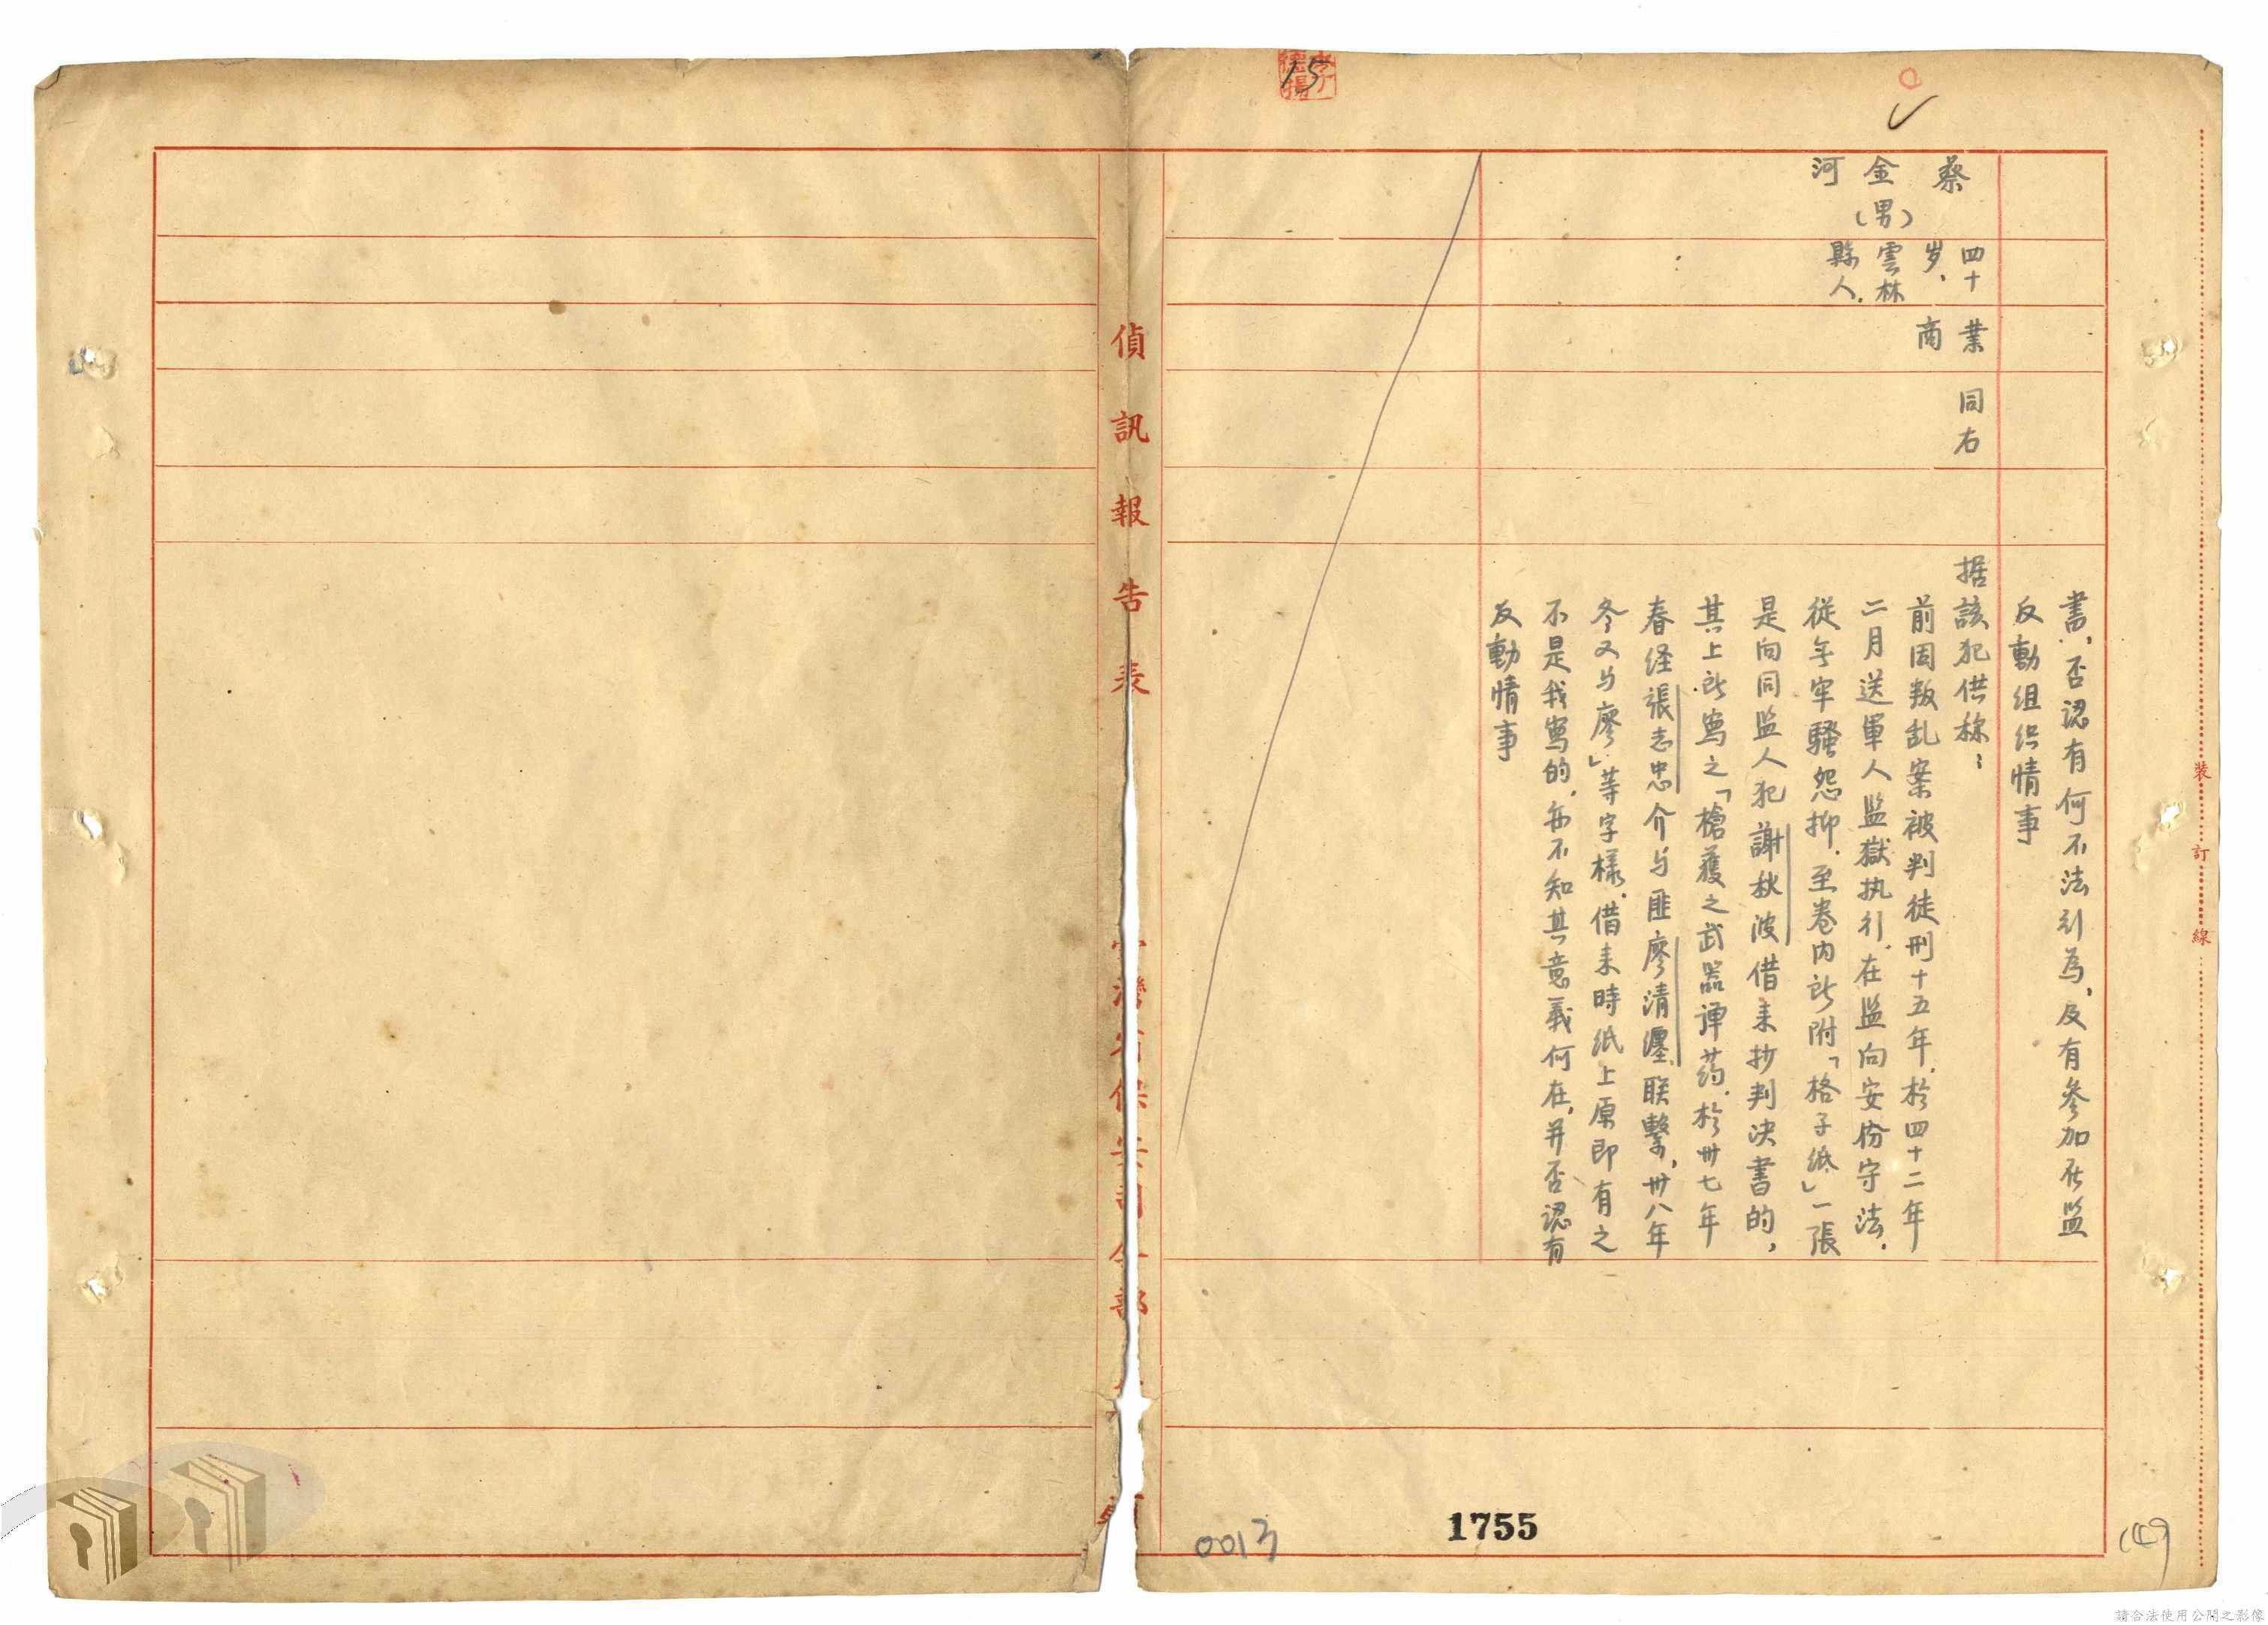 15
書，否認有何不法行為，及有參加在監
反動組织情事
蔡金河
（男）
四十
岁、
雲林
縣人.
業
商
同右
据該犯供称：
前因叛乱案被判徒刑十五年．於四十二年
二月送軍人監獄执行．在監向安份守法．
從无牢騷怨抑．至卷内所附「格子紙」一張
是向同監人犯謝秋波借来抄判决書的，
其上所寫之「槍獲之武器彈药．於卅七年
春经張志忠介与匪廖清纏联繫，卅八年
冬又与廖」等字樣．借来時紙上原即有之
不是我寫的．毎不知其意義何在，并否認有
反動情事
偵訊報告表
台灣省保安司令部
裝訂線
1755
0013
請合法使用公開之影像